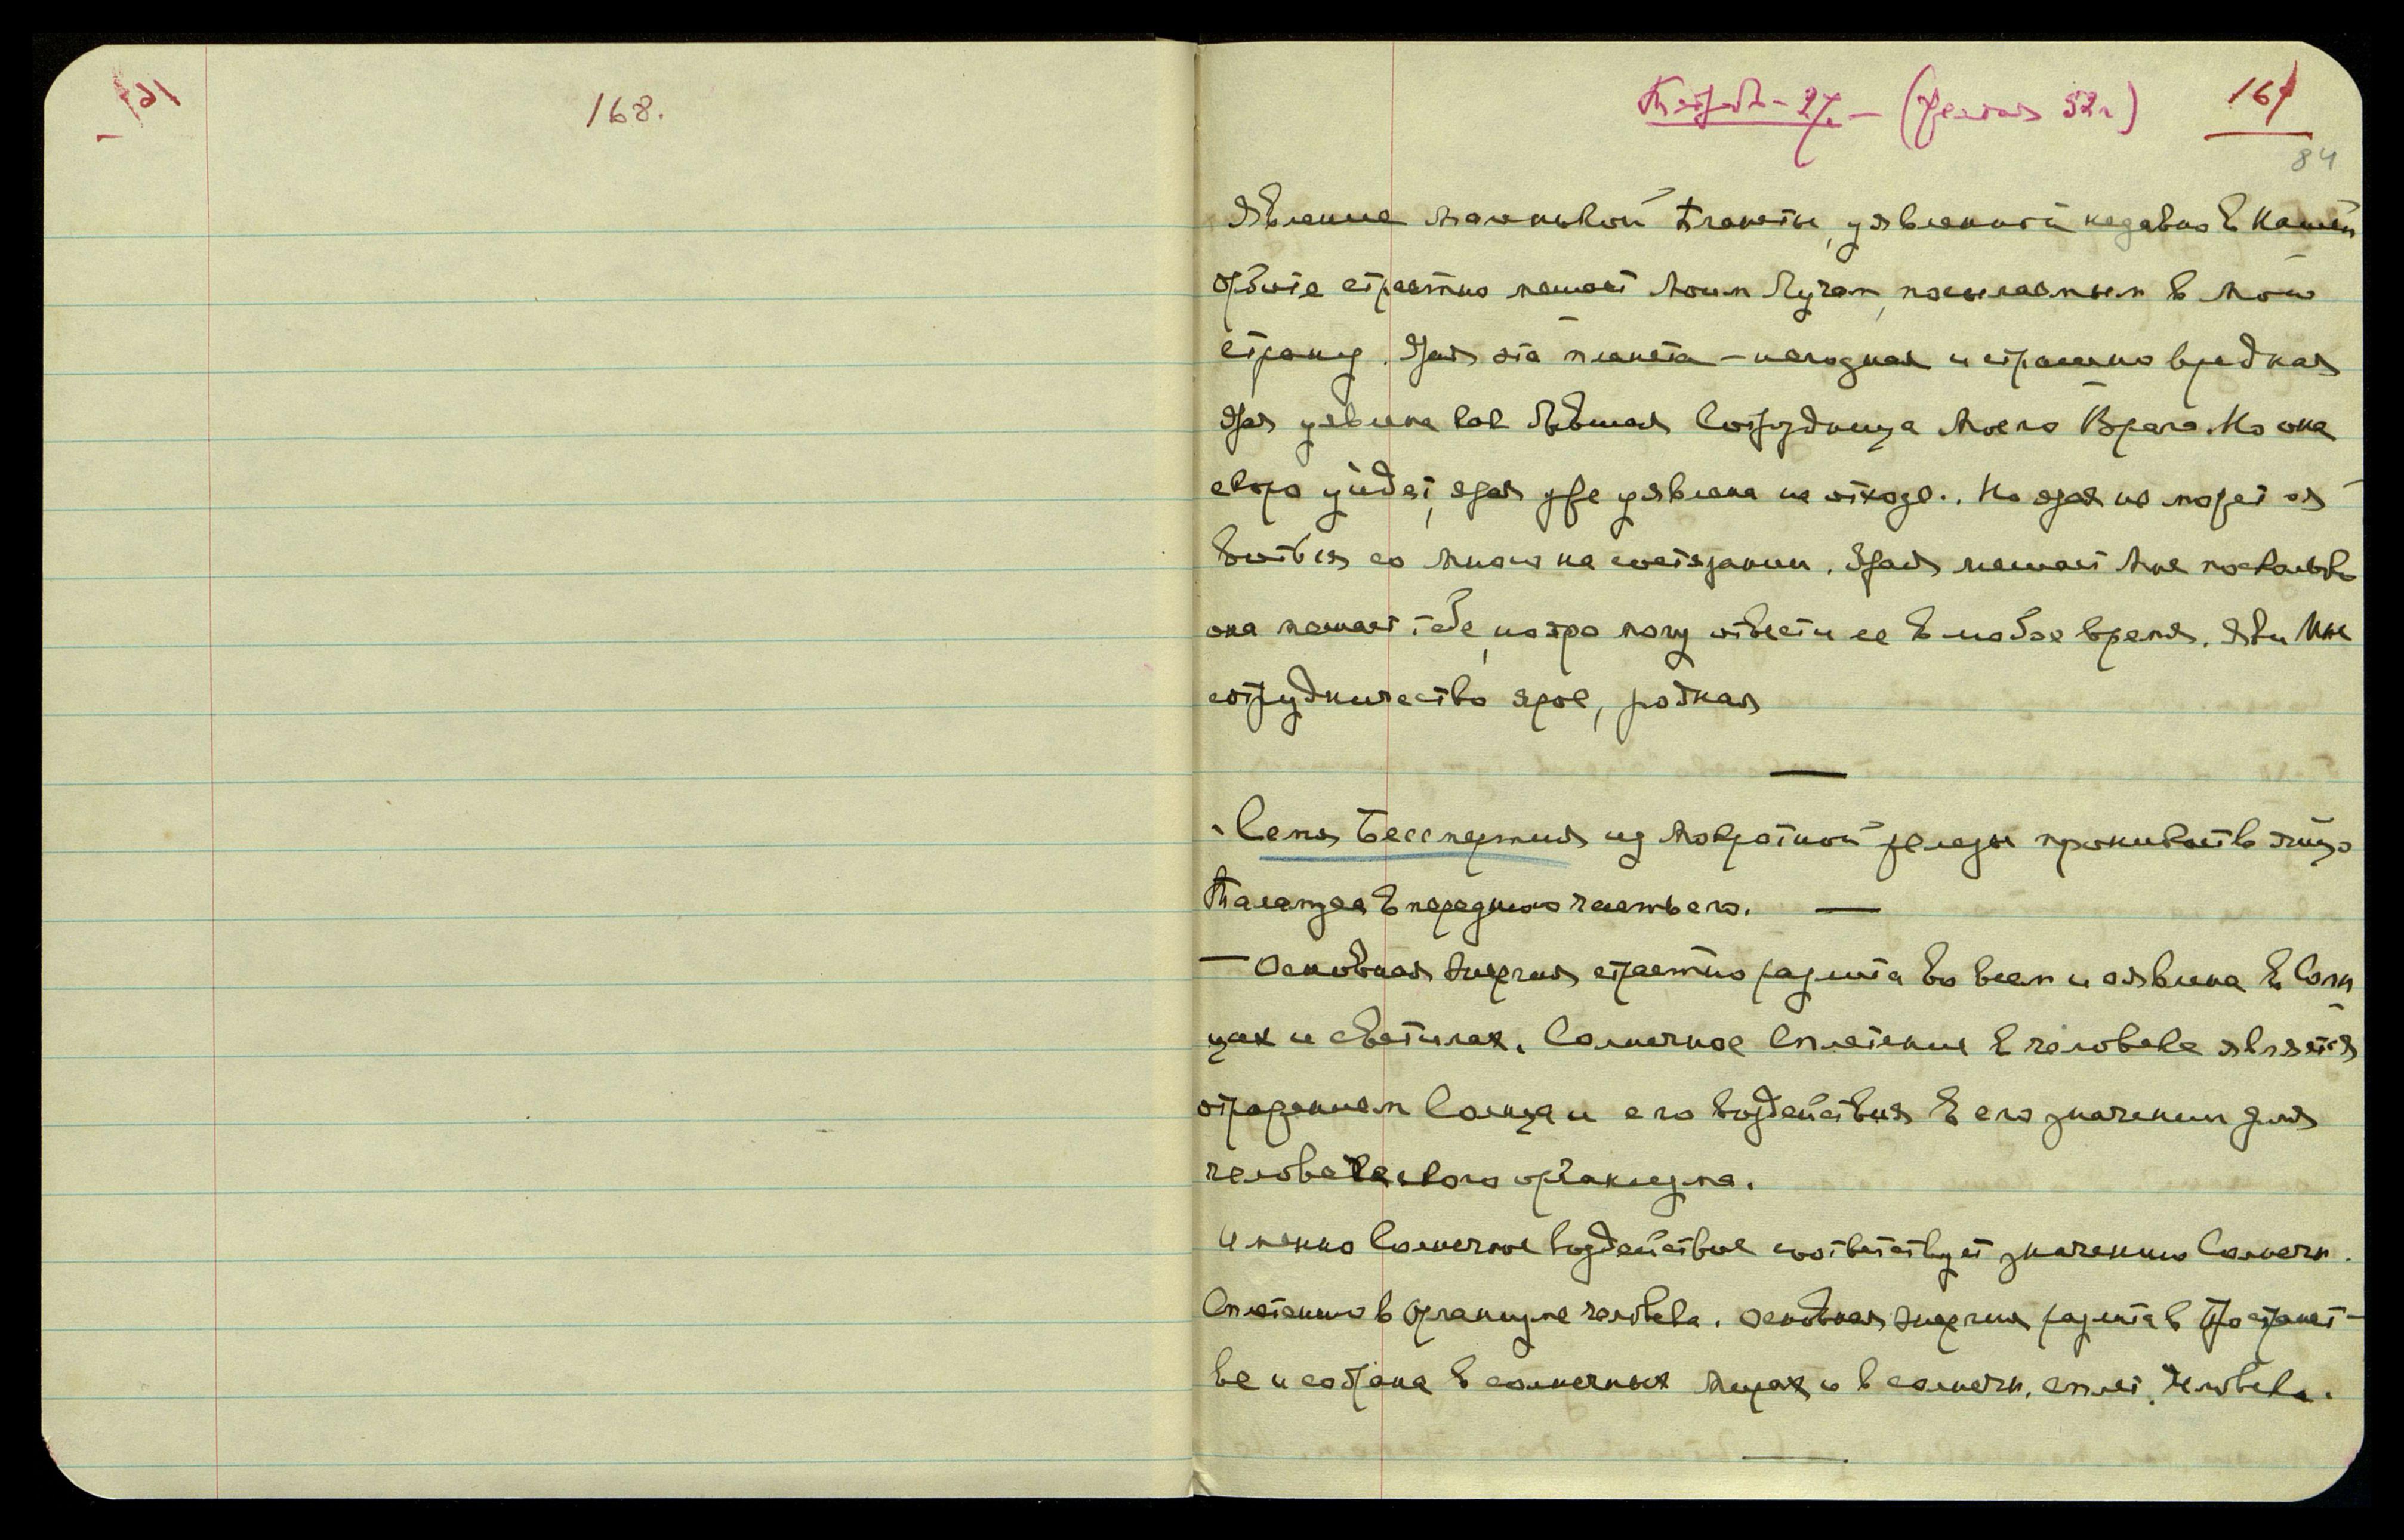 168.
Тетрадь - 27. - ( 52 г)
161
84
Явление маленькой Планеты, уявленной недавно в нашей
орбите страстно мешает Моим Лучам, посылаемым в Мою
страну. Ярая эта планета – негодная и страшно вредная
Ярая уявлена как бывшая Сотрудница Моего Врага. Но она
скоро уйдет, ярая уже уявлена на отходе.. Но ярая не может оя
виться со Мною на состязании. Ярая мешает Мне поскольку
она мешает тебе, но яро могу отвести ее в любое время. Яви Мне
сотрудничество ярое, родная
—
Семя Бессмертия из Мокротной железы проникает в яйцо
Таламуса в переднюю часть его. —
— Основная энергия страстно разлита во всем и оявлена в Солн
цах и светилах. Солнечное Сплетение в человеке является
отражением Солнца и его воздействия в его значении для
человеческого организма.
Именно Солнечное воздействие соответствует значению Солнечн.
Сплетению в Организме человека. Основная энергия разлита в Пространст-
ве и собрана в солнечных лучах и в солнечн. сплет. человека.